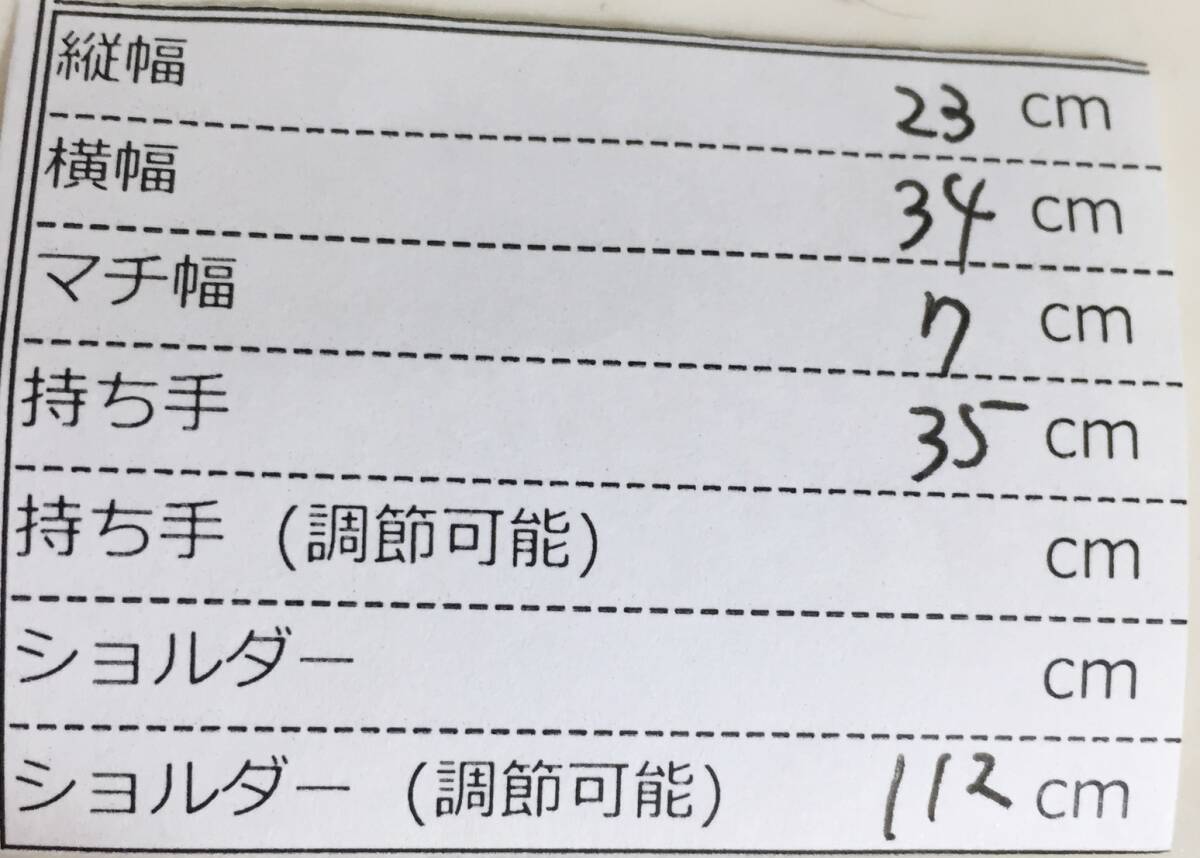 縦幅 23 cm
横幅 34 cm
マチ幅 7 cm
持ち手 35 cm
持ち手 (調節可能) cm
ショルダー cm
ショルダー (調節可能) 112 cm